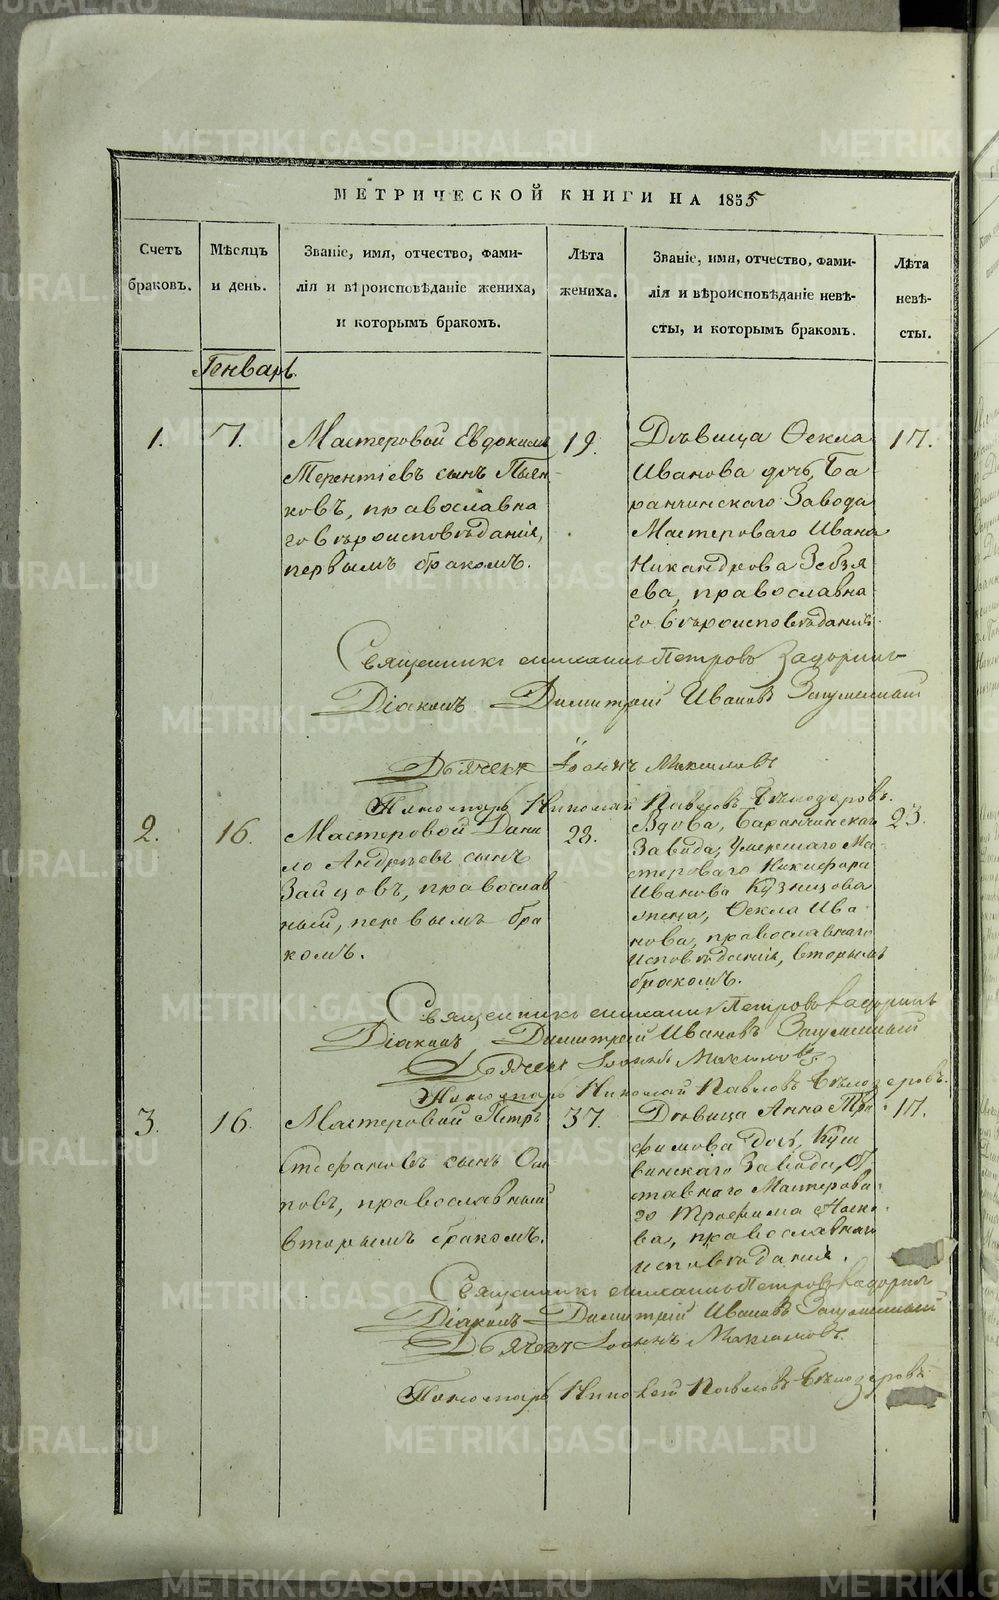 МЕТРИЧЕСКОЙ КНИГИ НА 1855
Счетъ браковъ.
Мѣсяцъ и день.
Званіе, имя, отчество, фами-
лія и вѣроисповѣданіе жениха,
и которымъ бракомъ.
Лѣта жениха.
Званіе, имя, отчество, фами-
лія и вѣроисповѣданіе невѣ-
сты, и которымъ бракомъ.
Лѣта невѣ-
сты.
Генварь.
1.
7.
Мастеровой Евдокимъ
Терентіевъ сынъ Пьян
ковъ, православна
го вѣроисповѣданія,
первымъ бракомъ.
19.
Дѣвица Ѳекла
Иванова дочь, Ба
ранчинскаго Завода
Мастероваго Ивана
Никандрова
ева, православна
го вѣроисповѣданія
17.
Священникъ Петровъ Задоринъ
Діаконъ Димитрій Ивановъ
Дьячекъ Іоаннъ Максимовъ
Пономарь Николай Павловъ Бѣлозеровъ.
2.
16.
Мастеровой Дани
ло Андреевъ сынъ
Зайцовъ, православ
ный, первымъ бра
комъ.
23.
Вдова, Баранчинскаго
Завода, умершаго Ма-
стероваго Никифора
Иванова Кузнецова
жена, Ѳекла Ива
нова, православнаго
исповѣданія, вторымъ
бракомъ.
23.
Священникъ Петровъ Задоринъ
Діаконъ Димитрій Ивановъ
Дьячекъ Іоаннъ Максимовъ
Пономарь Николай Павловъ Бѣлозеровъ.
3.
16.
Мастеровой Петръ
Стефановъ сынъ Оси
повъ, православный
вторымъ бракомъ.
37.
Дѣвица Анна Тро
фимова дочь, Куш
винскаго Завода, От
ставнаго Мастерова
го Трофима
ва, православнаго
исповѣданія.
17.
Священникъ Петровъ Задоринъ
Діаконъ Димитрій Ивановъ
Дьячекъ Іоаннъ Максимовъ.
Пономарь Николай Павловъ Бѣлозеровъ
METRIKI.GASO-URAL.RU